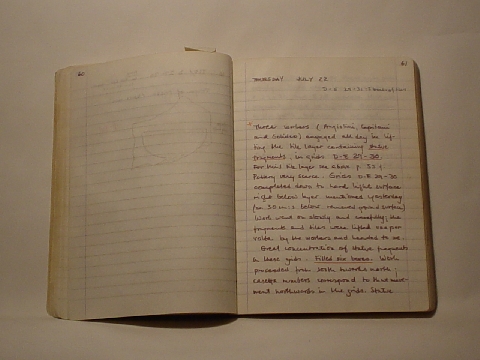 60
61
TUESDAY JULY 22
Three workers (
and ) engaged all day in lif-
ting the tile layer containing statue
fragments, in grids D-E 29-30.
For this tile layer see above p.
Pottery very scarce. Grids D-E 29-30
completed down to hard light surface
right below layer mentioned yesterday
(ca 3.5 m. below removed ground surface)
Work went on slowly and carefully; the
fragments and tiles were lifted one per
by the workers and handed to me.
Great concentration of statue fragments
in these grids. Filled six boxes. Work
proceeded from south towards north;
numbers correspond to this move-
ment northwards in the grids. Statue